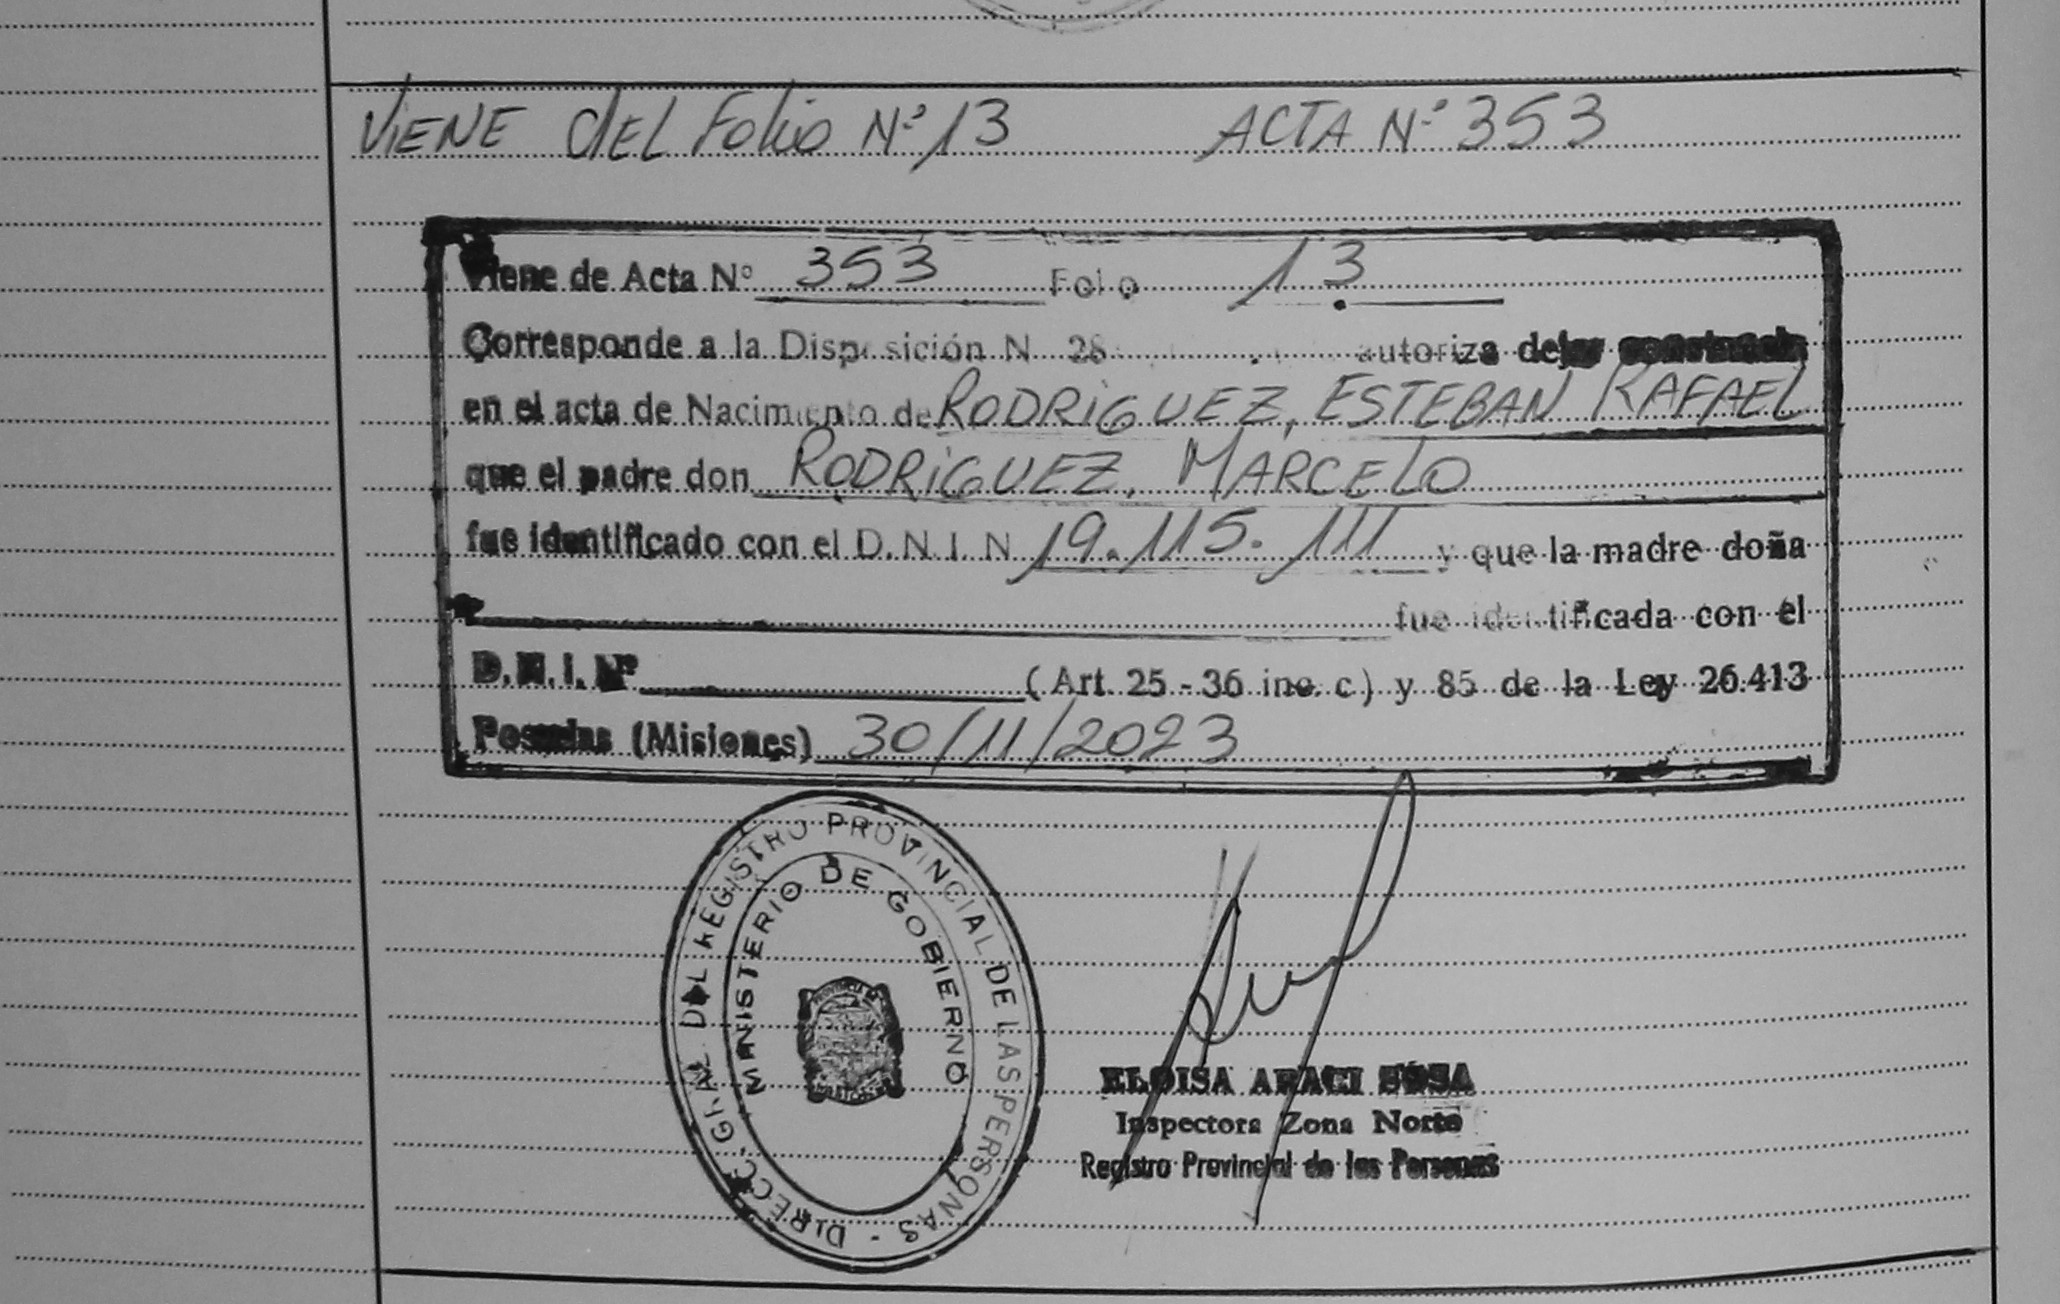 VIENE DEL FOLIO Nº 13 ACTA Nº 353
Viene de Acta Nº 353 Folio 13
Corresponde a la Disposición N 28 autoriza dejar constancia
en el acta de Nacimiento de RODRIGUEZ, ESTEBAN RAFAEL
que el padre don RODRIGUEZ, MARCELO
fue identificado con el D.N.I. N 19.115.111 y que la madre doña
fue identificada con el
D.N.I. Nº (Art. 25 - 36 inc. c) y 85 de la Ley 26.413
Posadas (Misiones) 30/11/2023
DIRECC. GRAL. DEL REGISTRO PROVINCIAL DE LAS PERSONAS -
MINISTERIO DE GOBIERNO
PROVINCIA DE
MISIONES
ELOISA ARACI SOSA
Inspectora Zona Norte
Registro Provincial de las Personas